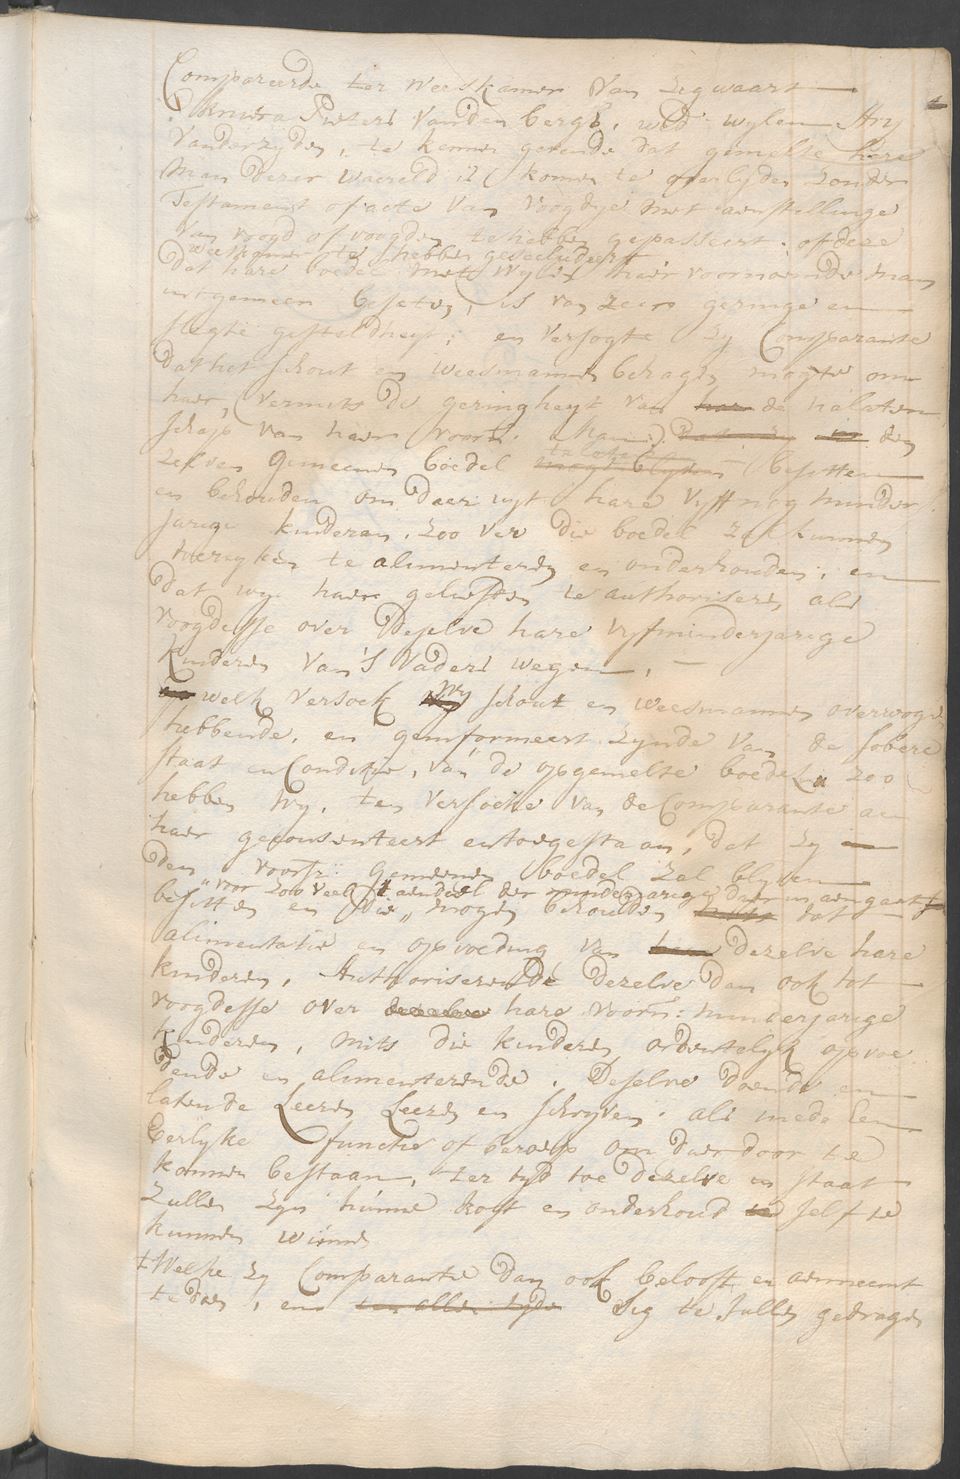 Compareerde ter weeskamer van Zegwaart
Pieters vanden bergh, wed: wylen Ary
vander zyden, te kennen gevende dat gemelte hare
man dezer waereld is komen te overlyden zonder
Testament of acte van voogdye met aenstellinge
van voogd of voogden te hebben gepasseert, of deze
weeskamer te hebben gesecludeert
dat hare boedel met wylen haer voornoemde man
int gemeen beseten, is van zeer geringe en
slegte gesteldheyt; en versogte zy Comparante
dat het schout en weesmannen behagen mogte om
haer, vermits de geringheyt van de nalaten
schap van haer voorn. man, den
te laten
zelven gemeenen boedel besitten
en behouden om daer uyt hare vyff nog minder
jarige kinderen, zoo ver die boedel zal kunnen
toereyken te alimenteren en onderhouden; en
dat wy haer geliefden te authoriseren als
voogdesse over deselve hare vyf minderjarige
kinderen van 's vaders wegen,
welk versoek wy schout en weesmannen overwogen
hebbende, en geinformeert zynde van de sobere
staat en Conditie, van de opgemelte boedel, zoo
hebben wy, ten versoeke van de Comparante aen
haer geconsenteert en toegestaan, dat zy
den voorsz: gemeenen boedel zal blyven
voor zoo veel 't aendeel der minderjarige daer in aengaat
besitten en die mogen behouden tot
alimentatie en opvoeding van dezelve hare
kinderen, Authoriserende dezelve dan ook tot
voogdesse over hare voorn: minderjarige
kinderen, mits die kinderen ordentelyk opvoe
dende en alimenterende, deselve doende en
latende Leeren Leesen en schryven, als mede een
Eerlyke functie of beroep om daer door te
konnen bestaan, ter tyd toe dezelve in staat
zullen zyn hunne kost en onderhoud self te
kunnen winnen
Welke zy Comparante dan ook belooft en aenneemt
te doen, en ten allen tyde Sig te sullen gedragen